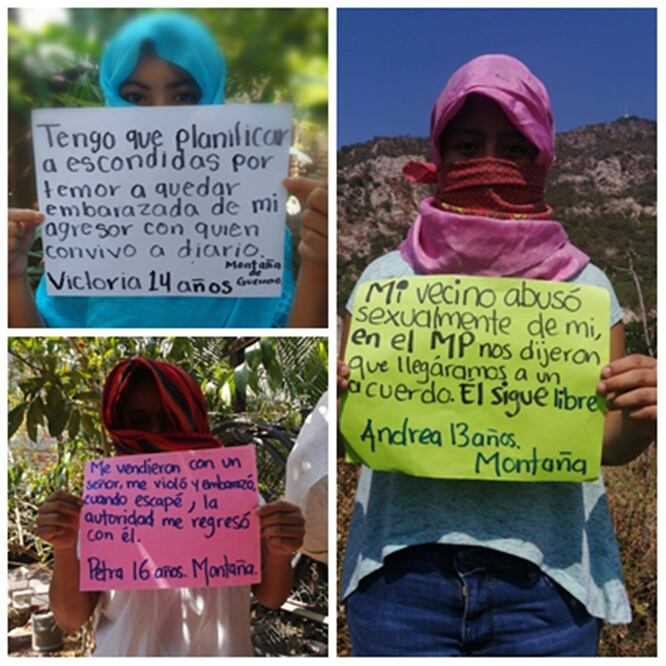 Tengo que planificar
a escondidas por
temor a quedar
embarazada de mi
agresor con quien
convivo a diario.
Montaña
de
Victoria 14 años Guerrero
Mi vecino abusó
sexualmente de mi,
en el MP nos dijeron
que llegáramos a un
acuerdo. El sigue libre
Andrea 13 años.
Montaña
Me vendieron con un
señor, me violó y embarazó,
cuando escapé, la
autoridad me regresó
con él.
Petra 16 años. Montaña.